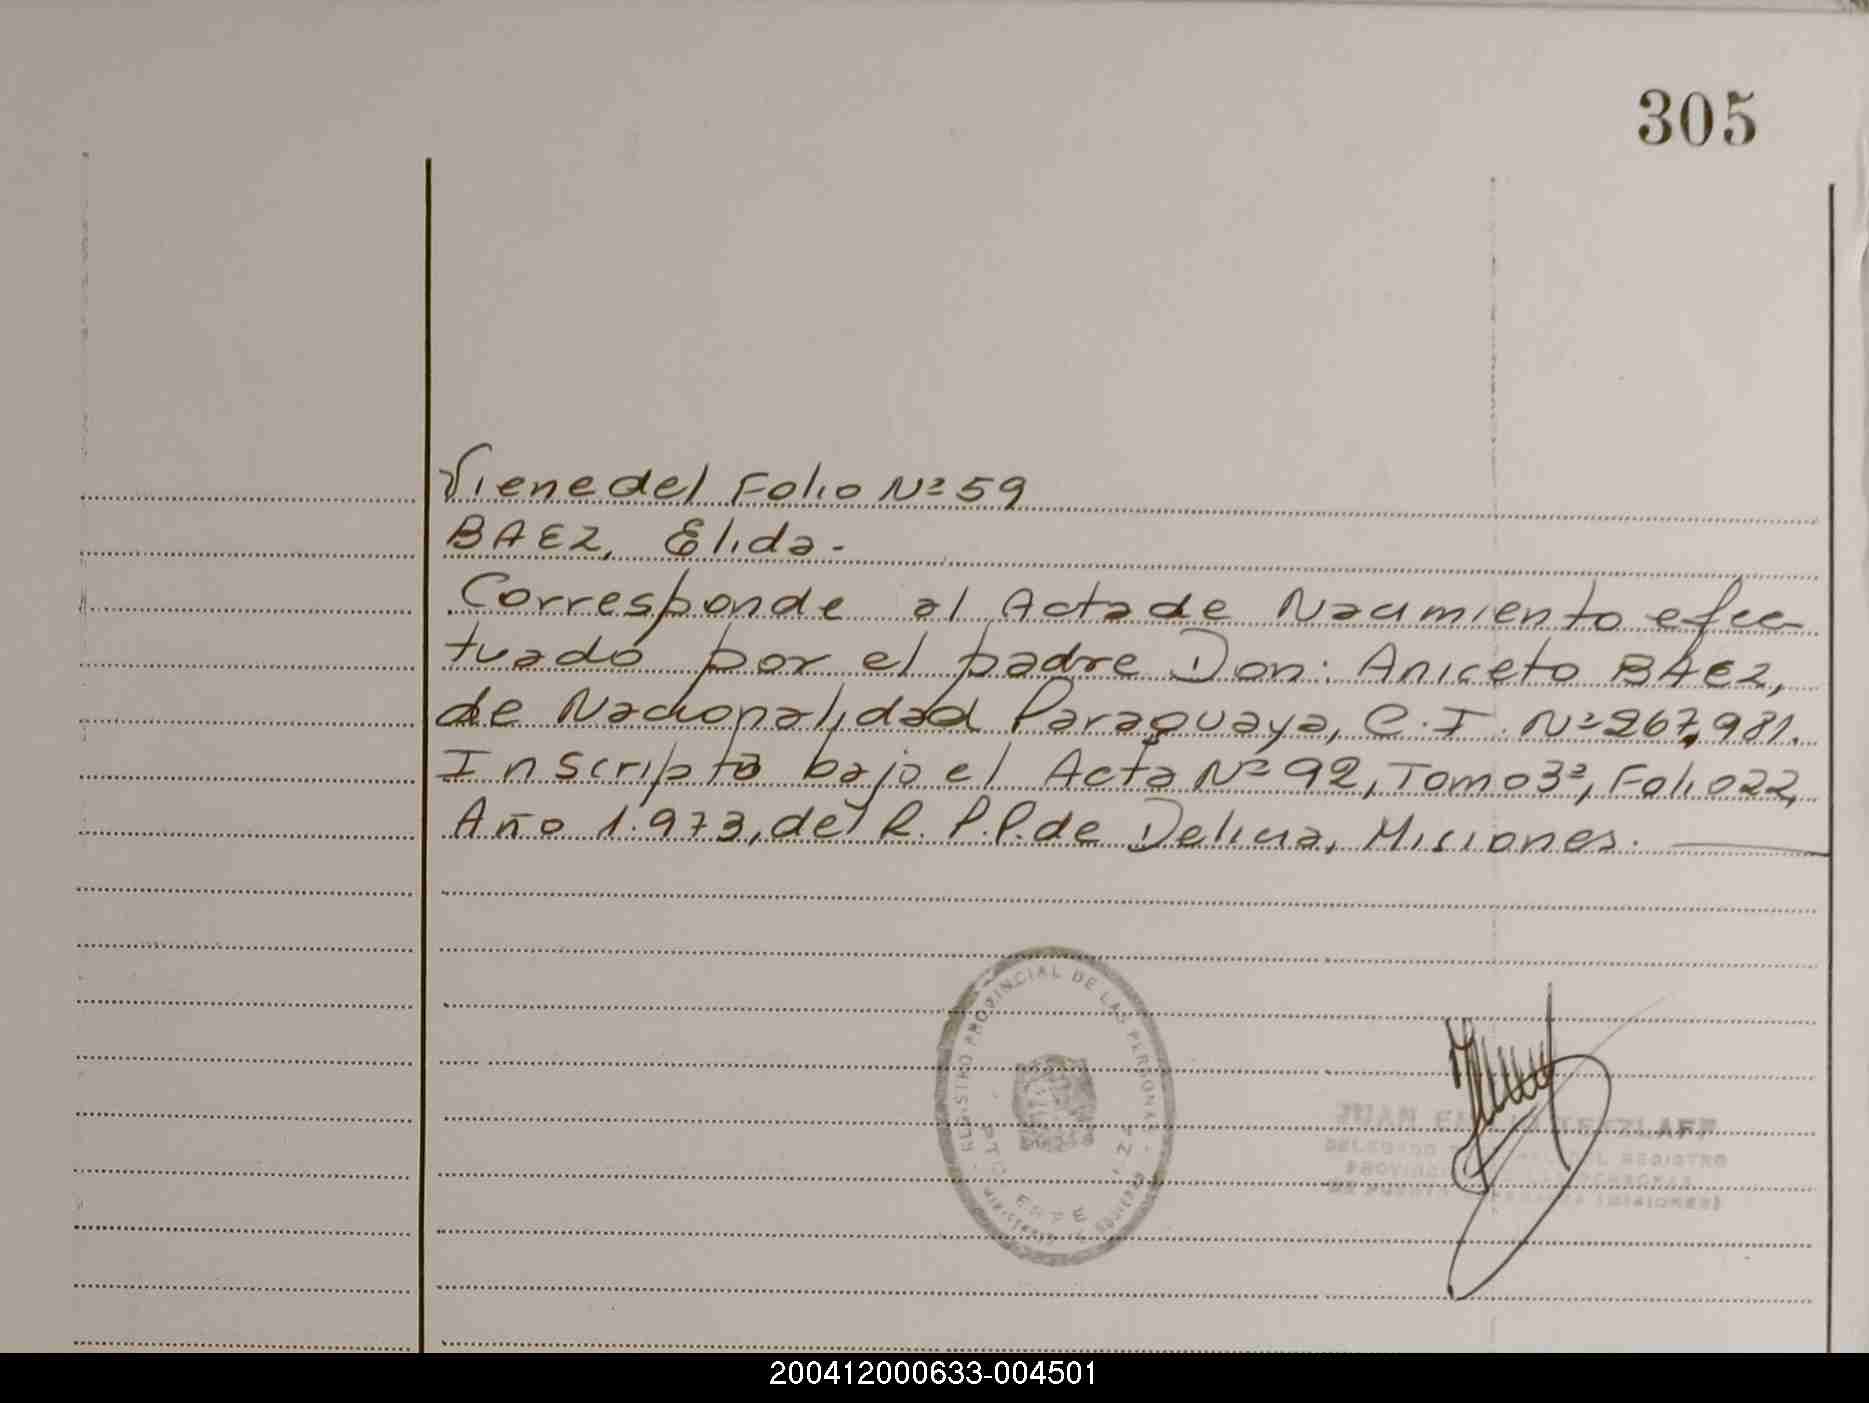 305
Viene del Folio Nº 59
BAEZ, Elida.-
Corresponde al Acta de Nacimiento efec-
tuado por el padre Don: Aniceto BAEZ,
de Nacionalidad Paraguaya, C.I. Nº 267.981.
Inscripta bajo el Acta Nº 92, Tomo 3º, Folio 22,
Año 1.973, del R.P.P. de Delicia, Misiones.
REGISTRO PROVINCIAL DE LAS PERSONAS
PTO. ESPERANZA
JUAN TETZLAFF
DELEGADO DEL REGISTRO
PROVINCIAL DE LAS PERSONAS
DE PUERTO (MISIONES)
200412000633-004501